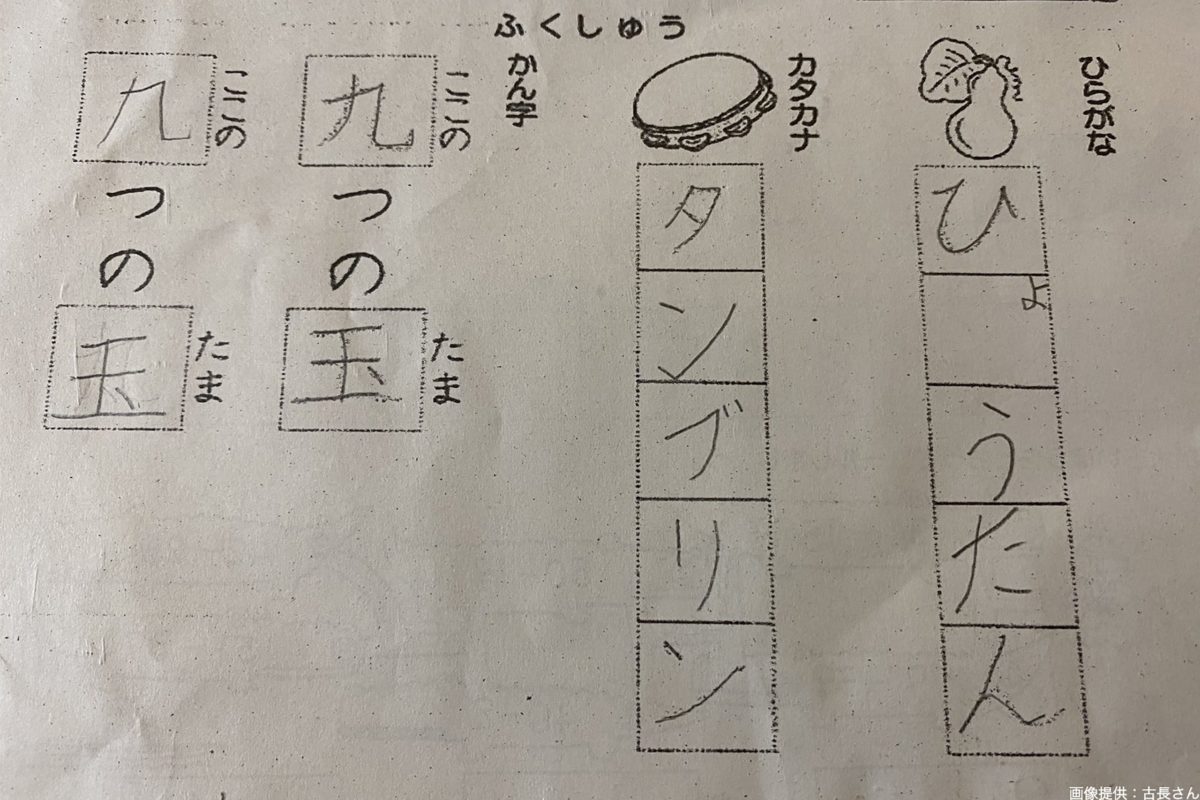 ふくしゅう
ひらがな
ひょうたん
カタカナ
タンブリン
かん字
ここの たま
九つの玉
ここの たま
九つの玉
画像提供：古長さん